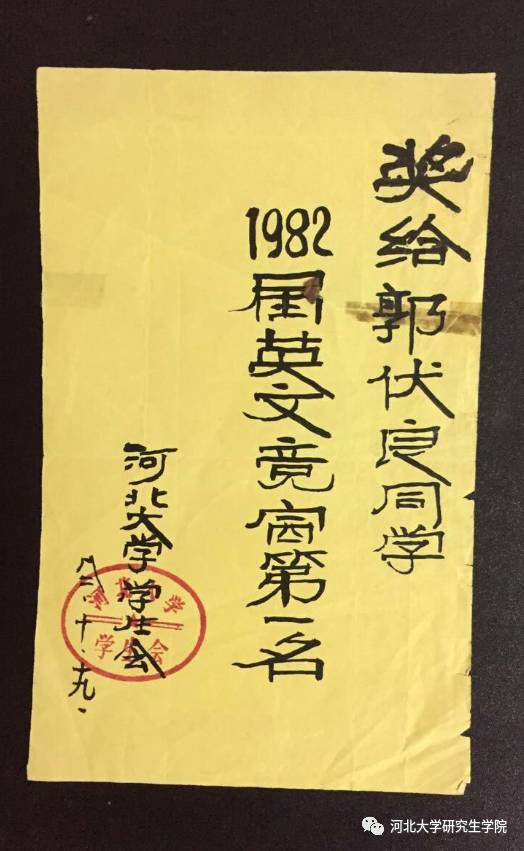 奖给郭伏良同学
1982届英文竟赛第一名
河北大学学生会
八二.十.十九.
学生会
河北大学研究生学院